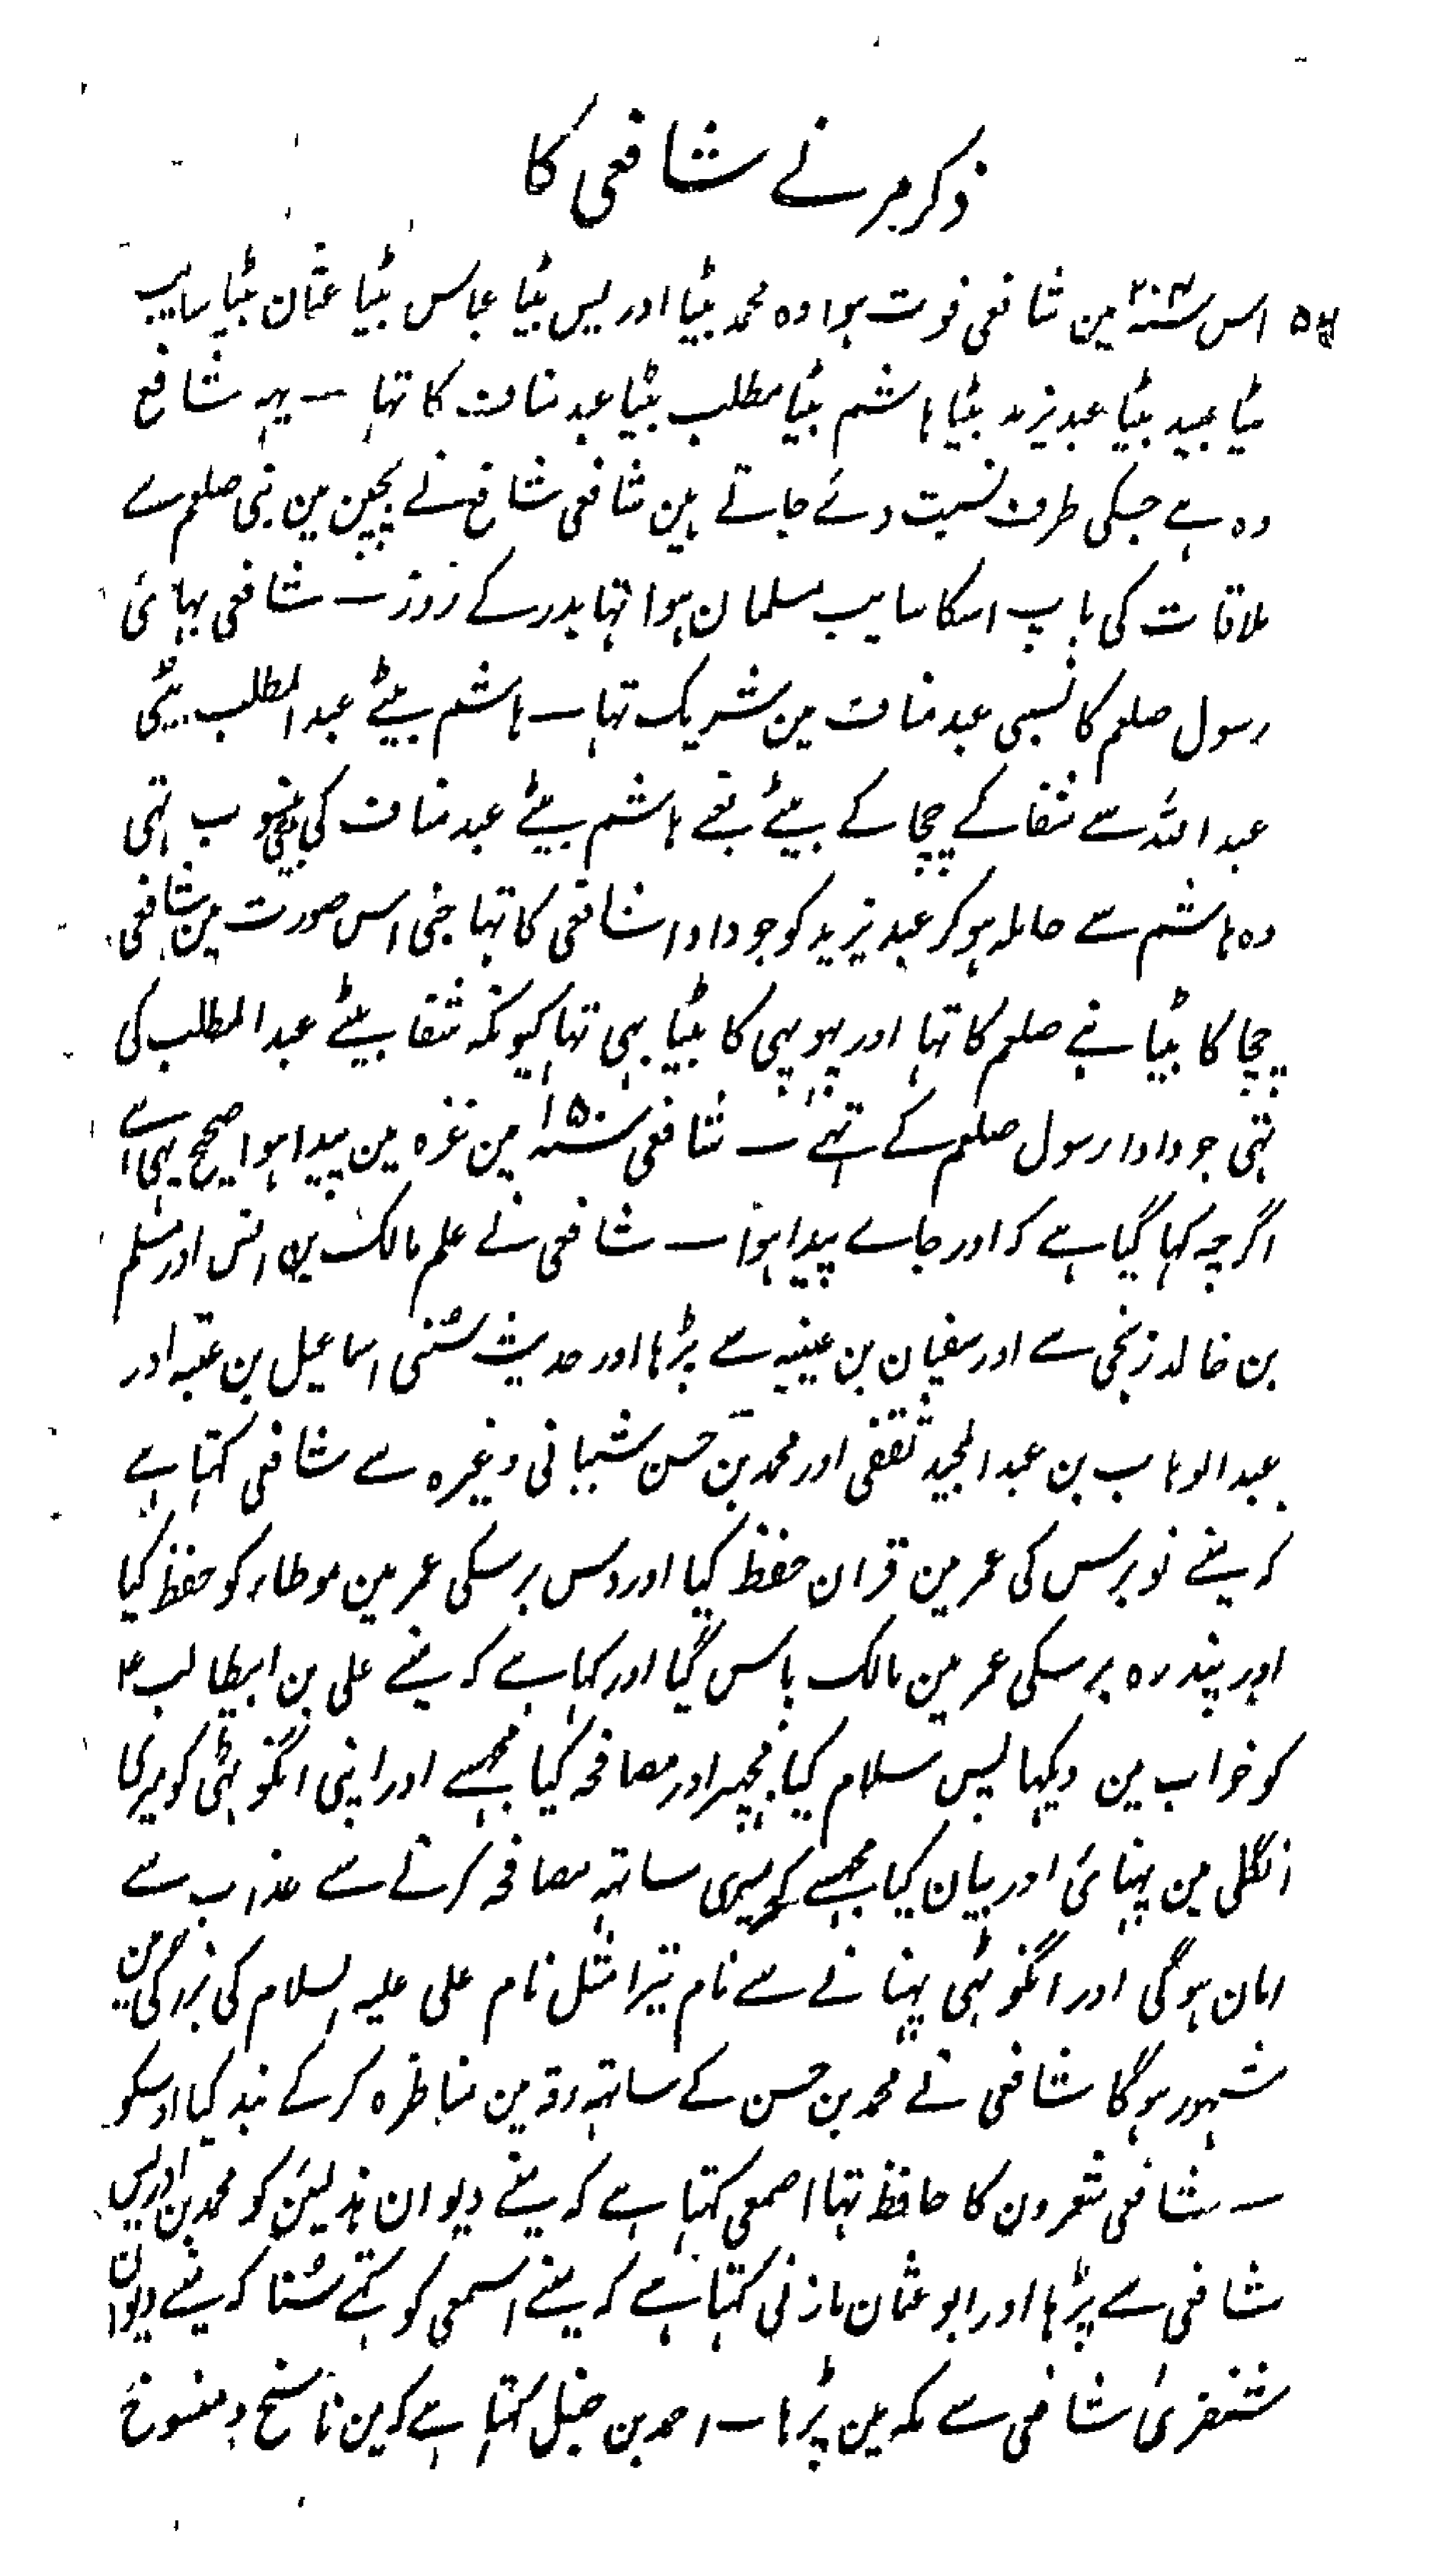 ذکر مرنے شافعی کا
اس سنہ ۲۰۴ مین شافعی فوت ہوا وہ محمد بیٹا ادریس بیٹا عباس بیٹا عثمان بیٹا سایب
بیٹا عبید بیٹا عبد یزید بیٹا ہاشم بیٹا مطلب بیٹا عبد مناف کا تہا ۔ یہہ شافع
وہ ہے جسکی طرف نسبت دئے جاتے ہین شافعی شافع نے بچپن مین نبی صلعم سے
ملاقات کی باپ اسکا سایب مسلمان ہوا تہا بدر کے روز ۔ شافعی بہائی
رسول صلعم کا نسبی عبد مناف مین شریک تہا ۔ ہاشم بیٹے عبد المطلب بیٹی
عبد اللہ سے شفا کے چچا کے بیٹے تہے ہاشم بیٹے عبد مناف کی منسوب تہی
وہ ہاشم سے حاملہ ہو کر عبد یزید کو جو دادا شافعی کا تہا جنی اس صورت مین شافعی
چچا کا بیٹا نبے صلعم کا تہا اور پہوپہی کا بیٹا بہی تہا کیونکہ شفا بیٹے عبد المطلب کی
تہی جو دادا رسول صلعم کے تہے ۔ شافعی سنہ ۱۵۰ مین غزہ مین پیدا ہوا صحیح یہی ہے
اگرچہ کہا گیا ہے کہ اور جاے پیدا ہوا ۔ شافعی نے علم مالک بن انس اور مسلم
بن خالد زنجی سے اور سفیان بن عینیہ سے پڑہا اور حدیث سُنی اسماعیل بن عتبہ اور
عبد الوہاب بن عبد المجید ثقفی اور محمد بن حسن شیبانی وغیرہ سے شافعی کہتا ہے
کہ مینے نو برس کی عمر مین قران حفظ کیا اور دس برسکی عمر مین موطاء کو حفظ کیا
اور پندرہ برسکی عمر مین مالک پاس گیا اور کہا ہے کہ مینے علی بن ابیطالب ع
کو خواب مین دیکہا پس سلام کیا مجہپر اور مصافحہ کیا مجہسے اور اپنی انگوٹہی کو میری
انگلی مین پہنائی اور بیان کیا مجہسے کہ میری ساتہہ مصافحہ کرنے سے عذاب سے
امان ہوگی اور انگوٹہی پہنانے سے نام تیرا مثل نام علی علیہ السلام کی بزرگی مین
مشہور ہوگا شافعی نے محمد بن حسن کے ساتہہ رقہ مین مناظرہ کر کے بند کیا اوسکو
۔ شافعی شعرون کا حافظ تہا اصمعی کہتا ہے کہ مینے دیوان ہذلیئن کو محمد بن ادریس
شافعی سے پڑہا اور ابو عثمان مازنی کہتا ہے کہ مینے اسمعی کو کہتے سُنا کہ مینے دیوان
شنفریٰ شافعی سے مکہ مین پڑہا ۔ احمد بن حنبل کہتا ہے کہ مین ناسخ و منسوخ